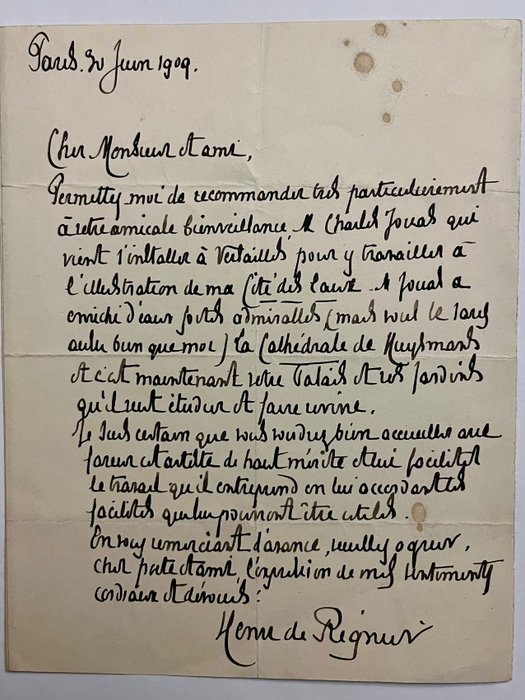 Paris. 30 Juin 1909.
Cher Monsieur et ami,
Permettez moi de recommander très particulièrement
à votre amicale bienveillance, M Charles Jouas qui
vient s'installer à Versailles pour y travailler à
l'illustration de ma Cité des Eaux. M Jouas a
enrichi d'eaux fortes admirables (mais vous le savez
aussi bien que moi) la Cathédrale de Huysmans
et c'est maintenant votre Palais et vos Jardins
qu'il veut étudier et faire revivre.
Je suis certain que vous voudrez bien accueillir avec
faveur cet artiste de haut mérite et lui faciliter
le travail qu'il entreprend en lui accordant les
facilités qui lui pourront être utiles.
En vous remerciant d'avance, veuillez agréer,
cher poète et ami, l'expression de mes sentiments
cordiaux et dévoués.
Henri de Régnier